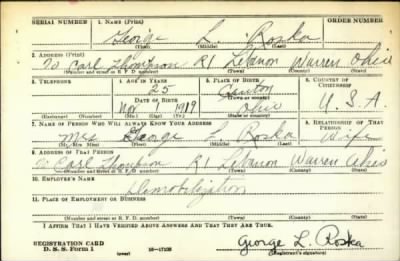 SERIAL NUMBER 1. NAME (Print) ORDER NUMBER
George L. Roska
(First) (Middle) (Last)
2. ADDRESS (Print)
℅ Carl Thompson R1 Lebanon Warren Ohio
(Number and street or R. F. D. number) (Town) (County) (State)
3. TELEPHONE 4. AGE IN YEARS 5. PLACE OF BIRTH 6. COUNTRY OF CITIZENSHIP
25
DATE OF BIRTH (Town or county)
Nov 1919 Ohio U.S.A.
(Exchange) (Number) (Mo.) (Day) (Yr.) (State or country)
7. NAME OF PERSON WHO WILL ALWAYS KNOW YOUR ADDRESS 8. RELATIONSHIP OF THAT PERSON
Mrs George L Roska Wife
(Mr., Mrs., Miss) (First) (Middle) (Last)
9. ADDRESS OF THAT PERSON
℅ Carl Thompson R1 Lebanon Warren Ohio
(Number and street or R. F. D. number) (Town) (County) (State)
10. EMPLOYER'S NAME
Demobilization
11. PLACE OF EMPLOYMENT OR BUSINESS
(Number and street or R. F. D. number) (Town) (County) (State)
I AFFIRM THAT I HAVE VERIFIED ABOVE ANSWERS AND THAT THEY ARE TRUE.
REGISTRATION CARD George L. Roska
D. S. S. Form 1 (over) (Registrant's signature)